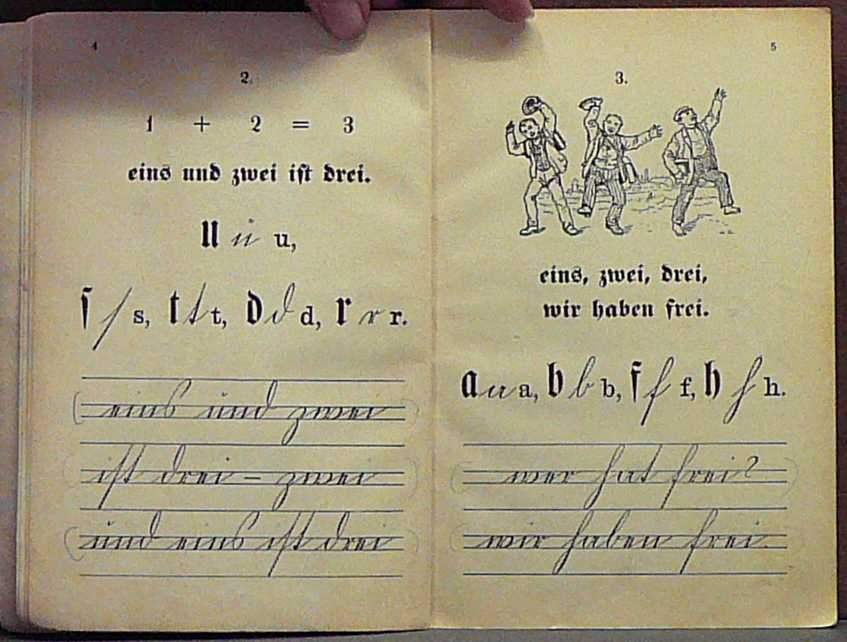 4
2.
1 + 2 = 3
eins und zwei iſt drei.
u u u,
ſ ſ s, t t t, d d d, r r r.
eins und zwei
iſt drei – zwei
und eins iſt drei
5
3.
eins, zwei, drei,
wir haben frei.
a a a, b b b, f f f, h h h.
wer hat frei?
wir haben frei.